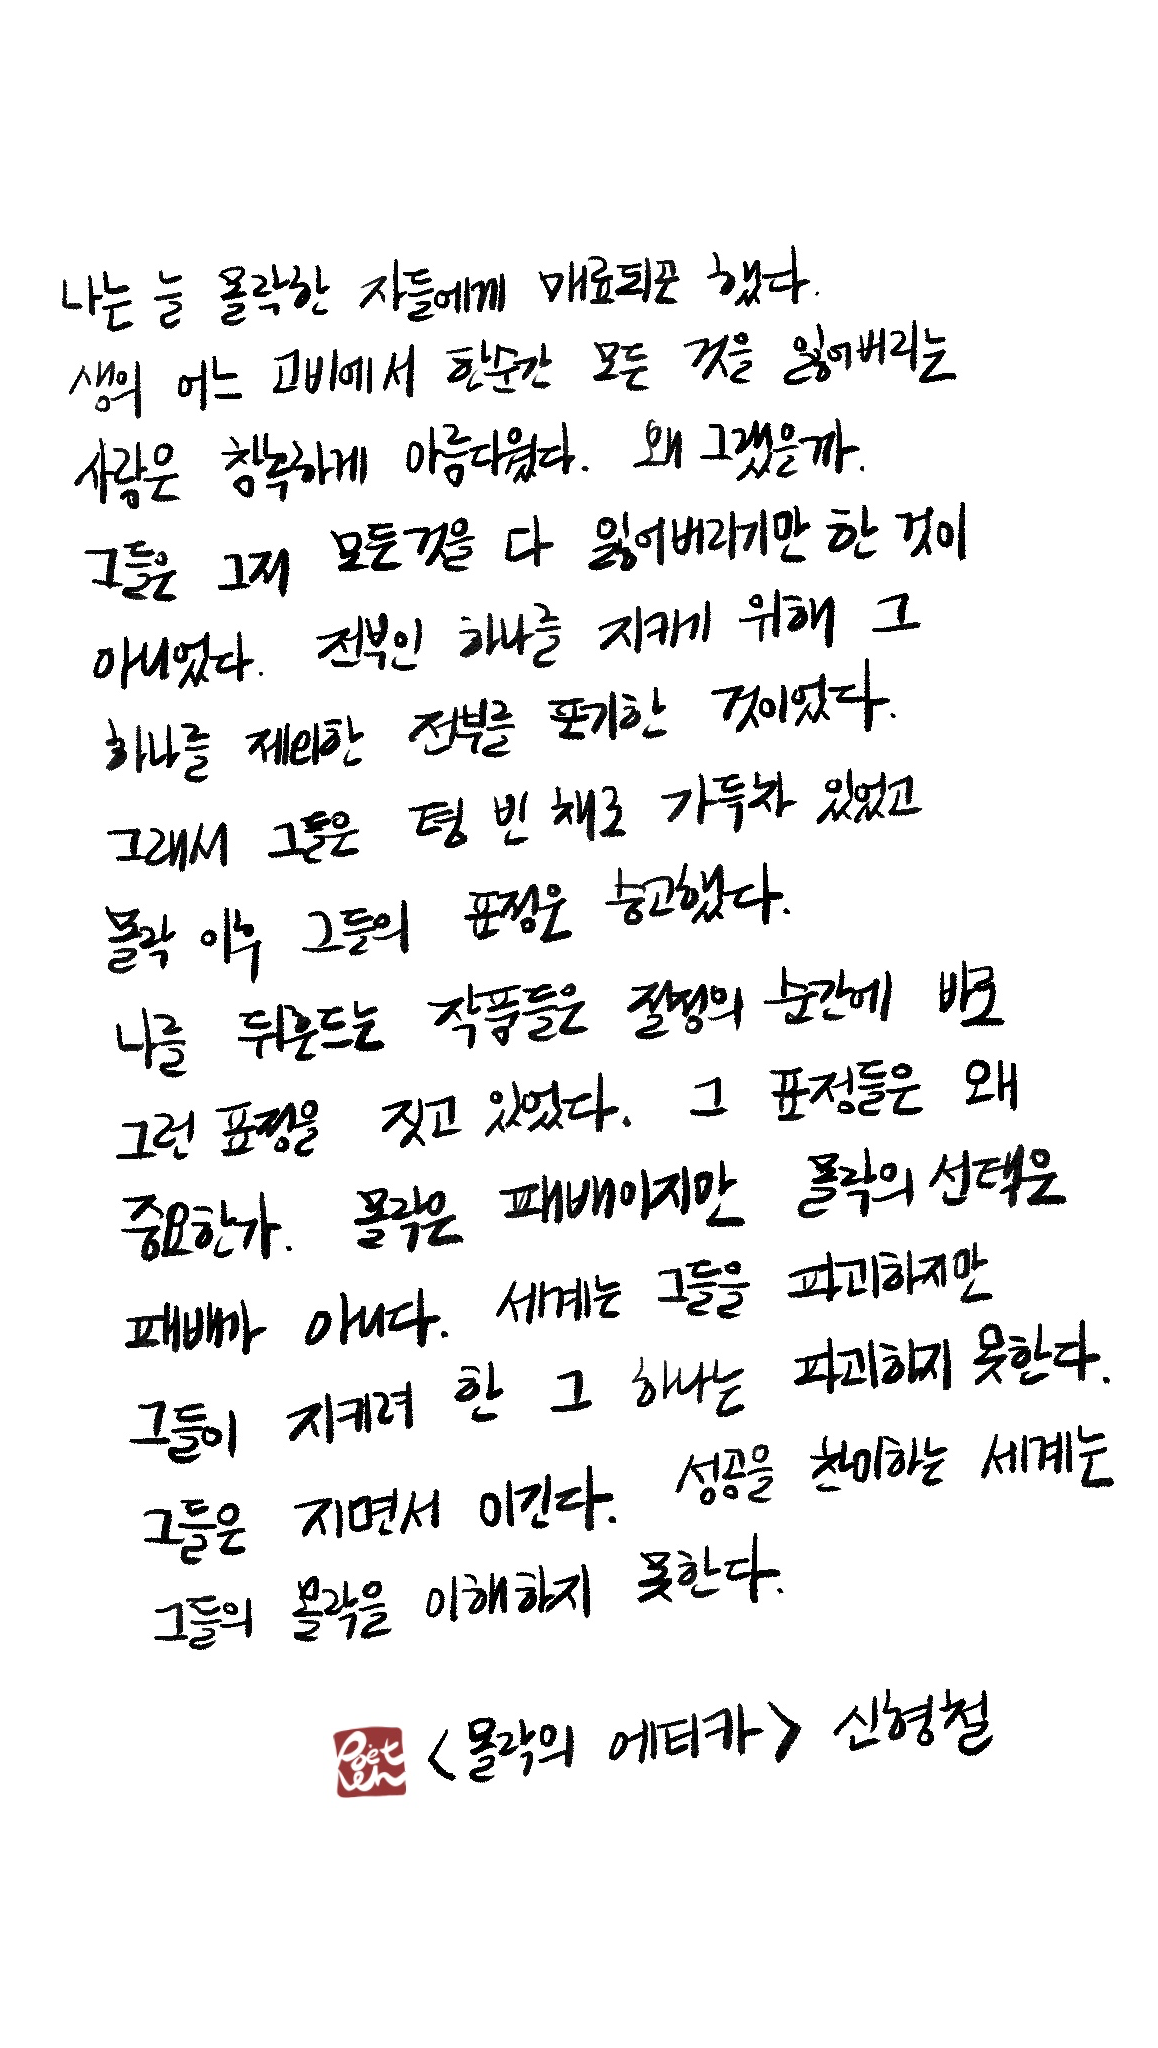 나는 늘 몰락한 자들에게 매료되곤 했다.
생의 어느 고비에서 한순간 모든 것을 잃어버리는
사람은 참혹하게 아름다웠다. 왜 그랬을까.
그들은 그저 모든것을 다 잃어버리기만 한 것이
아니었다. 전부인 하나를 지키기 위해 그
하나를 제외한 전부를 포기한 것이었다.
그래서 그들은 텅 빈 채로 가득차 있었고
몰락 이후 그들의 표정은 숭고했다.
나를 뒤흔드는 작품들은 절정의 순간에 바로
그런 표정을 짓고 있었다. 그 표정들은 왜
중요한가. 몰락은 패배이지만 몰락의 선택은
패배가 아니다. 세계는 그들을 파괴하지만
그들이 지키려 한 그 하나는 파괴하지 못한다.
그들은 지면서 이긴다. 성공을 찬미하는 세계는
그들의 몰락을 이해하지 못한다.
Poet Len <몰락의 에티카> 신형철